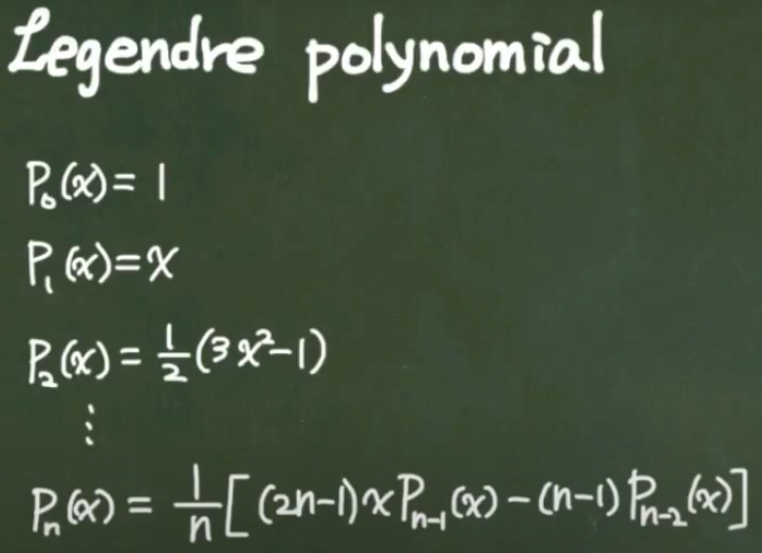 Legendre polynomial
P₀(x) = 1
P₁(x) = x
P₂(x) = 1/2 (3x² - 1)
⋮
Pₙ(x) = 1/n [(2n-1) x Pₙ₋₁(x) - (n-1) Pₙ₋₂(x)]